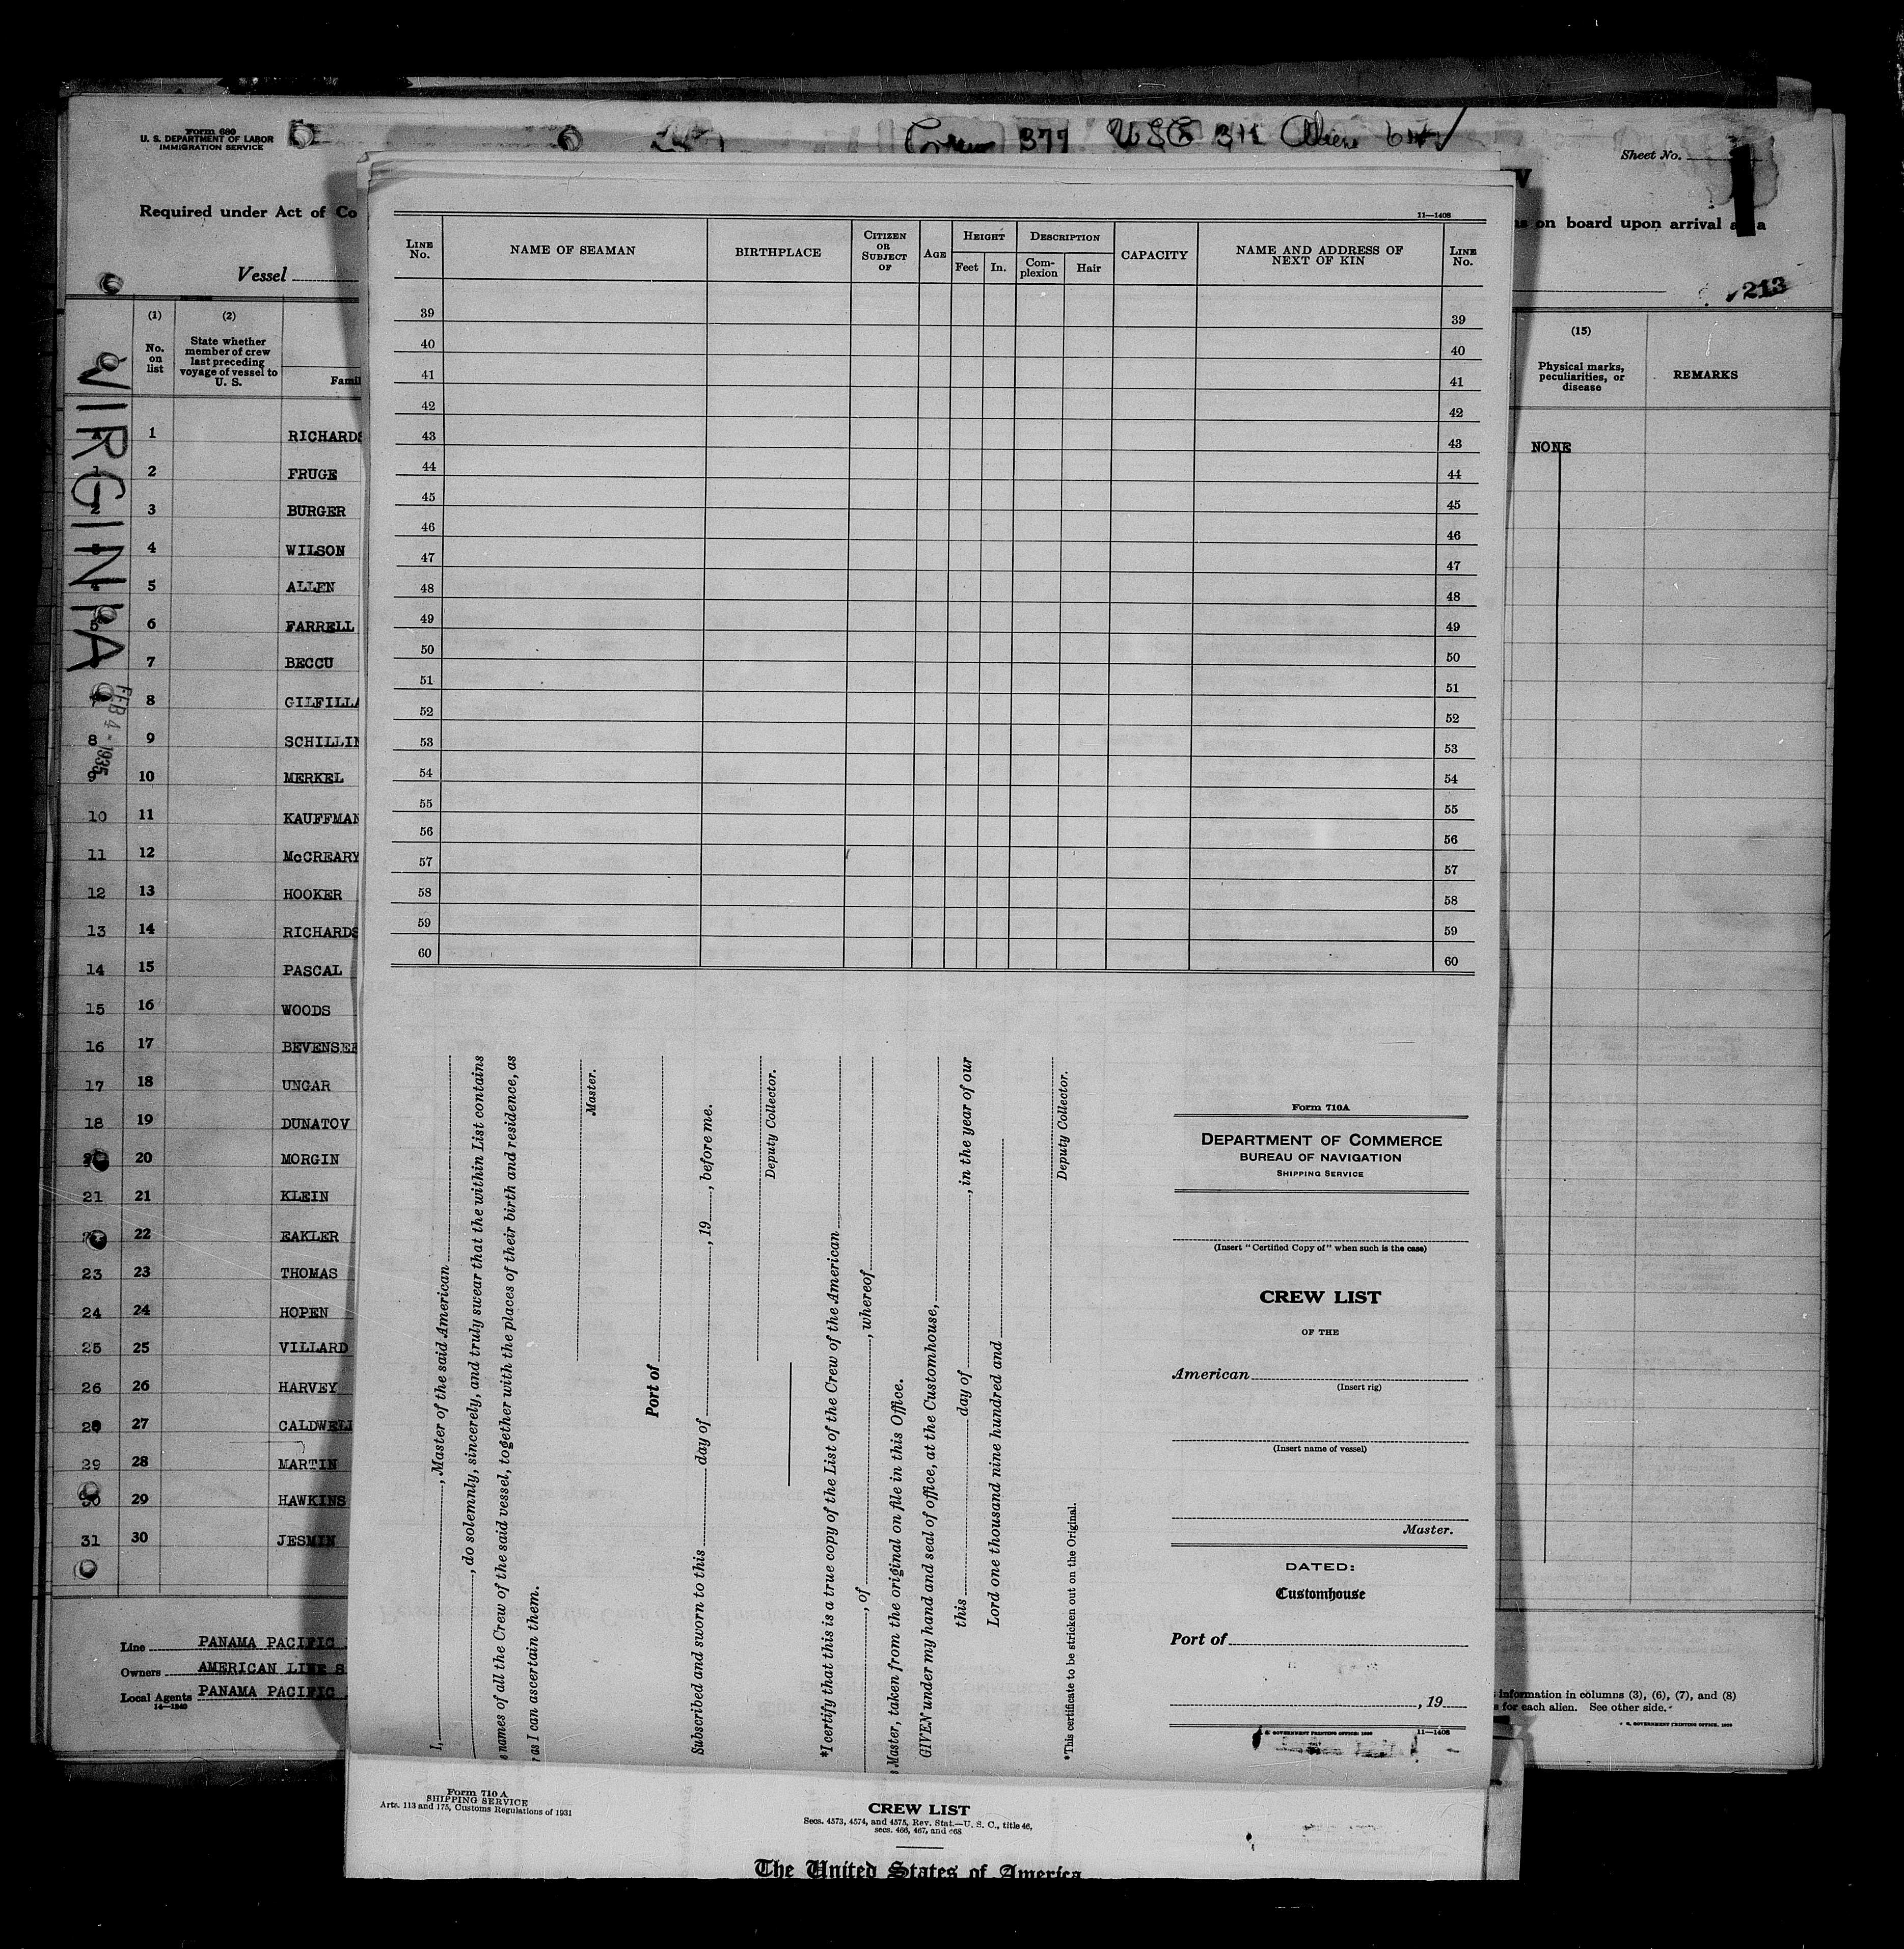 Form 680
U. S. DEPARTMENT OF LABOR
IMMIGRATION SERVICE
377 USC 311
Sheet No.
1
Required under Act of Co
s on board upon arrival a a
Vessel
213
(1)
No.
on
list
(2)
State whether
member of crew
last preceding
voyage of vessel to
U. S.
Famil
(15)
Physical marks,
peculiarities, or
disease
REMARKS
NONE
VIRGINIA
FEB 4 - 1935
1 RICHARDS
1 2 FRUGE
2 3 BURGER
4 WILSON
4 5 ALLEN
6 FARRELL
7 BECCU
7 8 GILFILLA
8 9 SCHILLIN
9 10 MERKEL
10 11 KAUFFMAN
11 12 McCREARY
12 13 HOOKER
13 14 RICHARDS
14 15 PASCAL
15 16 WOODS
16 17 BEVENSEE
17 18 UNGAR
18 19 DUNATOV
20 MORGIN
21 21 KLEIN
22 EAKLER
23 23 THOMAS
24 24 HOPEN
25 25 VILLARD
26 26 HARVEY
28 27 CALDWELL
29 28 MARTIN
30 29 HAWKINS
31 30 JESMIN
Line PANAMA PACIFIC
Owners AMERICAN LINE S
Local Agents PANAMA PACIFIC
14—1240
information in columns (3), (6), (7), and (8)
s for each alien. See other side.
S. GOVERNMENT PRINTING OFFICE:
11—1408
LINE
No.
NAME OF SEAMAN
BIRTHPLACE
CITIZEN
OR
SUBJECT
OF
AGE
HEIGHT
Feet In.
DESCRIPTION
Com-
plexion
Hair
CAPACITY
NAME AND ADDRESS OF
NEXT OF KIN
LINE
No.
39 39
40 40
41 41
42 42
43 43
44 44
45 45
46 46
47 47
48 48
49 49
50 50
51 51
52 52
53 53
54 54
55 55
56 56
57 57
58 58
59 59
60 60
I, , Master of the said American
, do solemnly, sincerely, and truly swear that the within List contains
names of all the Crew of the said vessel, together with the places of their birth and residence, as
r as I can ascertain them.
Master.
Port of
Subscribed and sworn to this day of , 19 , before me.
Deputy Collector.
*I certify that this is a true copy of the List of the Crew of the American
, of , whereof
Master, taken from the original on file in this Office.
GIVEN under my hand and seal of office, at the Customhouse,
this day of , in the year of our
Lord one thousand nine hundred and
Deputy Collector.
*This certificate to be stricken out on the Original.
Form 710A
DEPARTMENT OF COMMERCE
BUREAU OF NAVIGATION
SHIPPING SERVICE
(Insert "Certified Copy of" when such is the case)
CREW LIST
OF THE
American
(Insert rig)
(Insert name of vessel)
Master.
DATED:
Customhouse
Port of
, 19
S. GOVERNMENT PRINTING OFFICE: 11—1408
Form 710 A
SHIPPING SERVICE
Arts. 113 and 175, Customs Regulations of 1931
CREW LIST
Secs. 4573, 4574, and 4575, Rev. Stat.—U. S. C., title 46,
secs. 466, 467, and 668
The United States of America